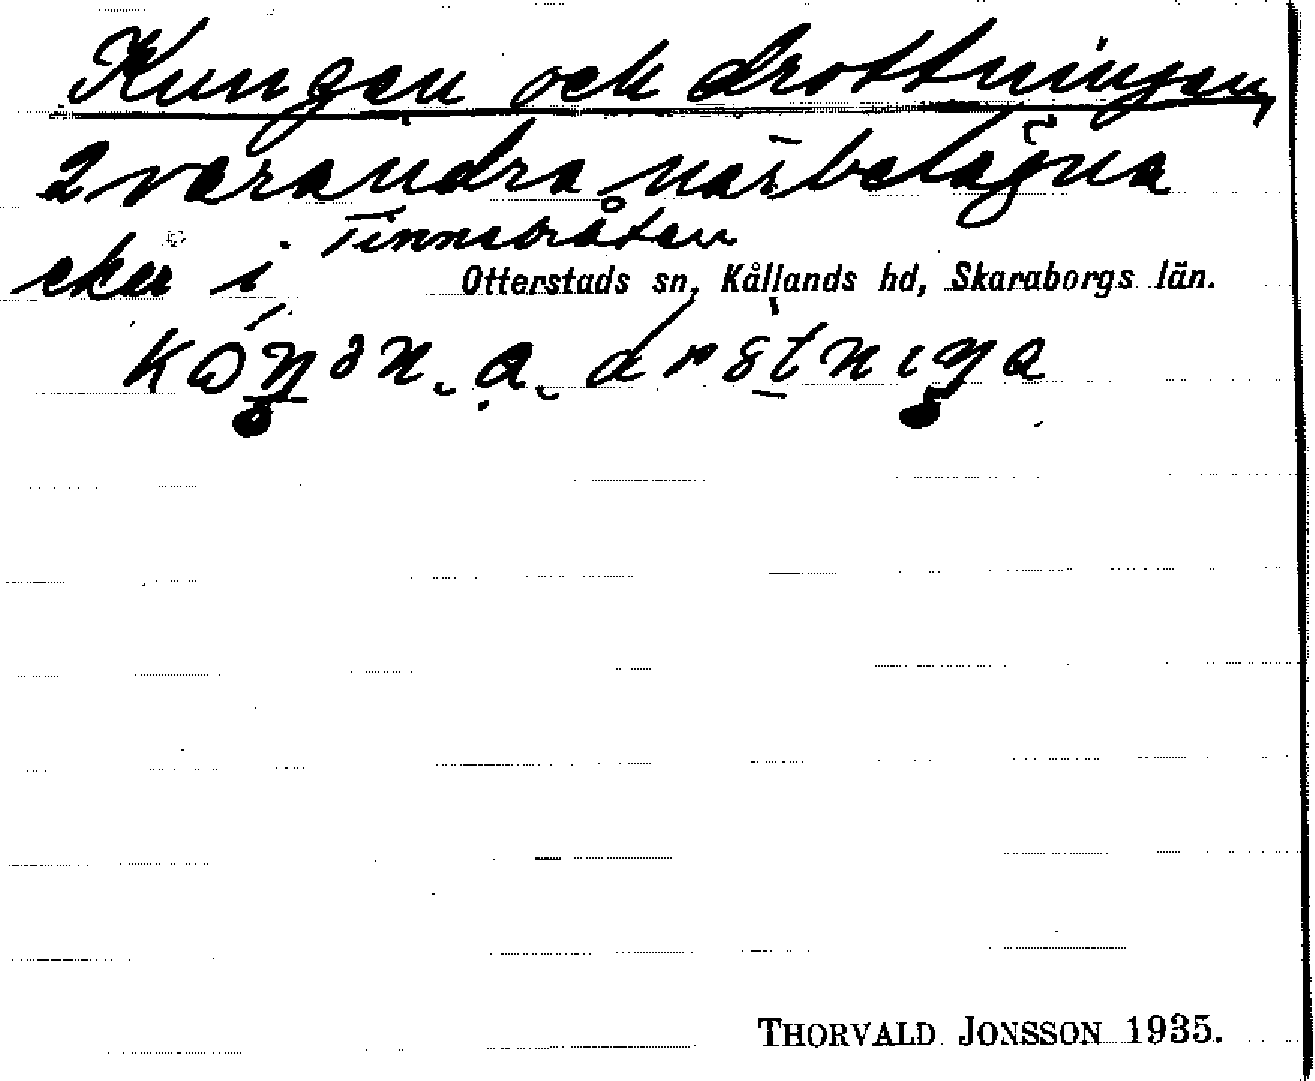 Kungen och drottningen,
2 varandra närbelägna
ekar i Tinnsbråten
Otterstads sn, Kållands hd, Skaraborgs län.
THORVALD JONSSON 1935.